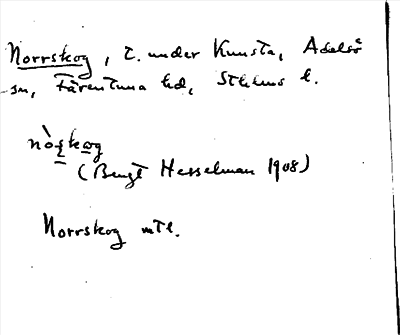 Norrskog, t. under Kunsta, Adelsö
sn, Färentuna hd, Sthlms l.
nòrskog
(Bengt Hesselman 1908)
Norrskog mtl.